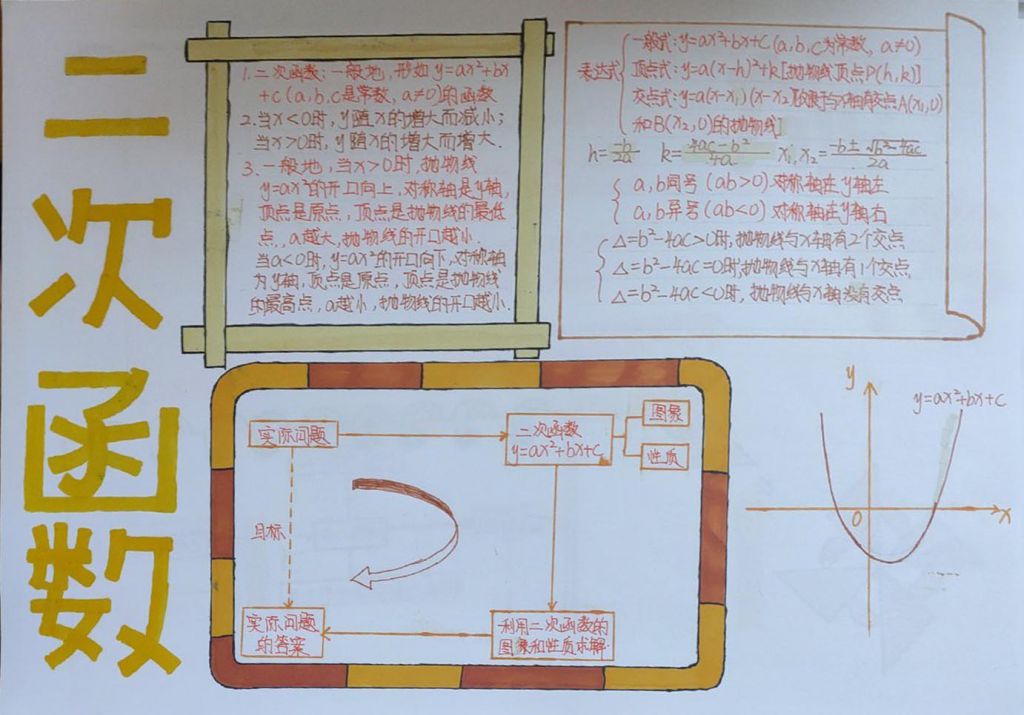 二次函数
1.二次函数:一般地,形如y=ax²+bx
+c(a,b,c是常数,a≠0)的函数
2.当x<0时,y随x的增大而减小;
当x>0时,y随x的增大而增大.
3.一般地,当x>0时,抛物线
y=ax²的开口向上,对称轴是y轴,
顶点是原点,顶点是抛物线的最低
点,a越大,抛物线的开口越小.
当a<0时,y=ax²的开口向下,对称轴
为y轴,顶点是原点,顶点是抛物线
的最高点,a越小,抛物线的开口越小.
表达式
一般式:y=ax²+bx+c(a,b,c为常数,a≠0)
顶点式:y=a(x-h)²+k[抛物线顶点P(h,k)]
交点式:y=a(x-x₁)(x-x₂)[仅限于与x轴有交点A(x₁,0)
和B(x₂,0)的抛物线]
h=-b/2a k=4ac-b²/4a x₁,x₂=-b±√b²-4ac/2a
a,b同号(ab>0)对称轴在y轴左
a,b异号(ab<0)对称轴在y轴右
△=b²-4ac>0时,抛物线与x轴有2个交点
△=b²-4ac=0时,抛物线与x轴有1个交点
△=b²-4ac<0时,抛物线与x轴没有交点
实际问题
二次函数
y=ax²+bx+c
图象
性质
目标
实际问题
的答案
利用二次函数的
图象和性质求解.
y
y=ax²+bx+c
0
x